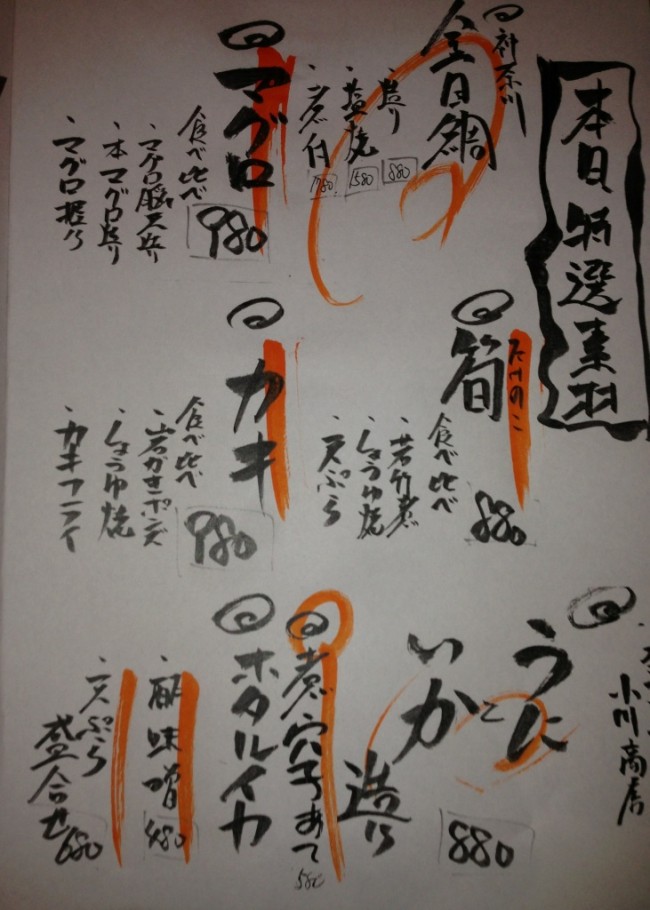 本日特選素材
神奈川
金目鯛
・造り 880
・塩焼 1580
・煮付 1780
マグロ
食べ比べ 980
・マグロ脳天造り
・本マグロ造り
・マグロ握り
たけのこ
筍
食べ比べ 880
・若竹煮
・しょうゆ焼
・天ぷら
カキ
食べ比べ 980
・岩がきポンズ
・しょうゆ焼
・カキフライ
小川商店
うに
と
いか
造り
880
煮穴子あて
580
ホタルイカ
・酢味噌 480
・天ぷら
盛合せ 680